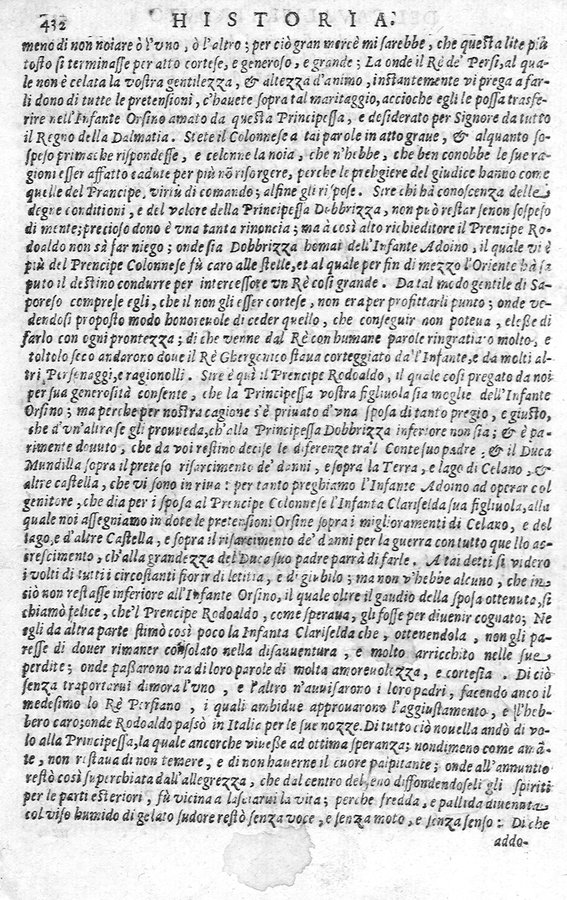 432 HISTORIA.
meno di non noiare ò l'vno, ò l'altro; per ciò gran mercè mi sarebbe, che questa lite più
tosto si terminasse per atto cortese, e generoso, e grande; La onde il Rè de' Persi, al qua-
le non è celata la vostra gentilezza, & altezza d'animo, instantemente vi prega a far-
li dono di tutte le pretensioni, c'hauete sopra tal maritaggio, accioche egli le possa trasfe-
rire nell'Infante Orsino amato da questa Principessa, e desiderato per Signore da tutto
il Regno della Dalmatia. Stete il Colonnese a tai parole in atto graue, & alquanto so-
speso prima che rispondesse, e celonne la noia, che n'hebbe, che ben conobbe le sue ra-
gioni esser affatto cadute per più nō risorgere, perche le preghiere del giudice hanno come
quelle del Prencipe, virtù di comando; alfine gli rispose. Sire chi hà conoscenza delle
degne conditioni, e del valore della Principessa Dobbrizza, non può restar senon sospeso
di mente; precioso dono è vna tanta rinoncia; ma à così alto richieditore il Prencipe Ro-
doaldo non sà far niego; onde sia Dobbrizza homai dell'Infante Adoino, il quale vi è
più del Prencipe Colonnese fù caro alle stelle, et al quale per fin di mezzo l'Oriente hà sa
puto il destino condurre per intercessore vn Rè così grande. Da tal modo gentile di Sa-
poreso comprese egli, che il non gli esser cortese, non era per profittarli punto; onde ve-
dendosi proposto modo honoreuole di ceder quello, che conseguir non poteua, elesse di
farlo con ogni prontezza; di che venne dal Rè con humane parole ringratiato molto, e
toltolo seco andarono doue il Rè Ghergenico staua corteggiato da l'Infante, e da molti al-
tri Personaggi, e ragionolli. Sire è quì il Prencipe Rodoaldo, il quale così pregato da noi
per sua generosità consente, che la Principessa vostra figliuola sia moglie dell'Infante
Orsino; ma perche per nostra cagione s'è priuato d'vna sposa di tanto pregio, e giusto,
che d'vn'altra se gli prouueda, ch'alla Principessa Dobbrizza inferiore non sia; & è pa-
rimente douuto, che da voi restino decise le diferenze tra'l Conte suo padre, & il Duca
Mundilla sopra il preteso risarcimento de' danni, e sopra la Terra, e lago di Celano, &
altre castella, che vi sono in riua: per tanto preghiamo l'Infante Adoino ad operar col
genitore, che dia per isposa al Principe Colonnese l'Infanta Clariselda sua figliuola, alla
quale noi assegniamo in dote le pretensioni Orsine sopra i miglioramenti di Celano, e del
lago, e d'altre Castella, e sopra il risarcimento de' danni per la guerra con tutto quello ac-
crescimento, ch'alla grandezza del Duca suo padre parrà di farle. A tai detti si videro
i volti di tutti i circostanti fiorir di letitia, e di giubilo; ma non v'hebbe alcuno, che in
ciò non restasse inferiore all'Infante Orsino, il quale oltre il gaudio della sposa ottenuta, si
chiamò felice, che'l Prencipe Rodoaldo, come speraua, gli fosse per diuenir cognato; Ne
egli da altra parte stimò così poco la Infanta Clariselda che, ottenendola, non gli pa-
resse di douer rimaner consolato nella disauuentura, e molto arricchito nelle sue
perdite; onde passarono tra di loro parole di molta amoreuolezza, e cortesia. Di ciò
senza traporui dimora l'vno, e l'altro n'auuisarono i loro padri, facendo anco il
medesimo lo Rè Persiano, i quali ambidue approuarono l'aggiustamento, e l'heb-
bero caro; onde Rodoaldo passò in Italia per le sue nozze. Di tutto ciò nouella andò di vo-
lo alla Principessa, la quale ancorche viuesse ad ottima speranza; nondimeno come amā-
te, non ristaua di non temere, e di non hauerne il cuore palpitante; onde all'annuntio
restò così superchiata dall'allegrezza, che dal centro del seno diffondendoseli gli spiriti
per le parti esteriori, fù vicina a lasciarui la vita; perche fredda, e pallida diuenuta
col viso humido di gelato sudore restò senza voce, e senza moto, e senza senso: Di che
addo-